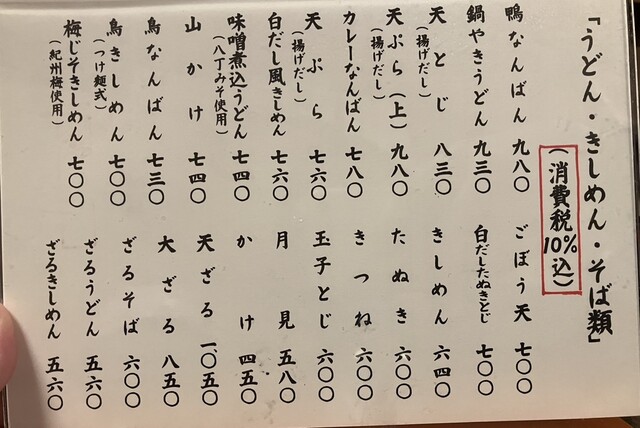 「うどん・きしめん・そば類」
(消費税10%込)
鴨なんばん 九八〇
鍋やきうどん 九三〇
天とじ 八三〇
(揚げだし)
天ぷら(上) 九八〇
(揚げだし)
カレーなんばん 七八〇
天ぷら 七六〇
(揚げだし)
白だし風きしめん 七六〇
味噌煮込うどん 七四〇
(八丁みそ使用)
山かけ 七四〇
鳥なんばん 七三〇
鳥きしめん 七〇〇
(つけ麺式)
梅じそきしめん 七〇〇
(紀州梅使用)
ごぼう天 七〇〇
白だしたぬきとじ 七〇〇
きしめん 六四〇
たぬき 六〇〇
きつね 六〇〇
玉子とじ 六〇〇
月見 五八〇
かけ 四五〇
天ざる 一、〇五〇
大ざる 八五〇
ざるそば 六〇〇
ざるうどん 五六〇
ざるきしめん 五六〇